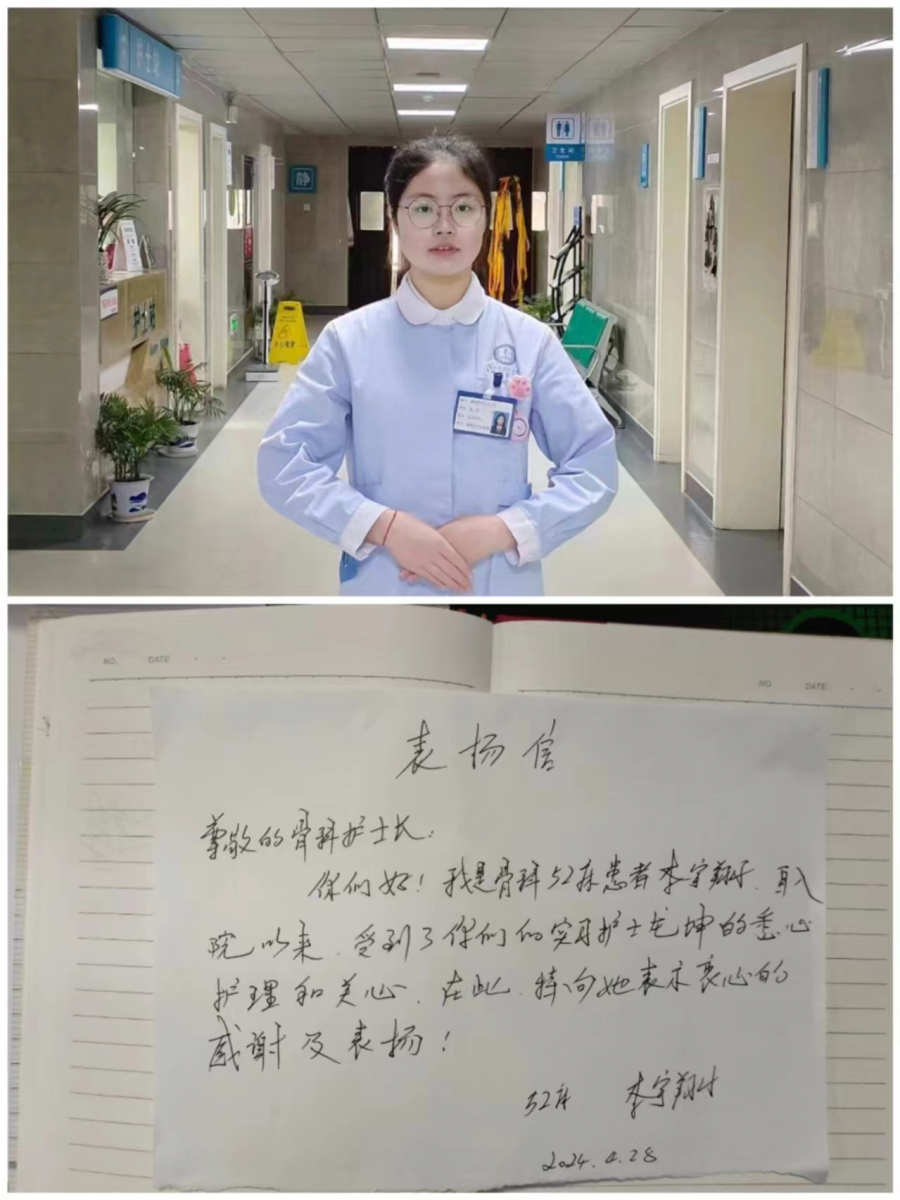 护士站
静
卫生间
小心地滑
NO. DATE
NO. DATE
表扬信
尊敬的骨科护士长:
你们好!我是骨科52床患者李宇翔,自入
院以来,受到了你们的实习护士龙坤的悉心
护理和关心,在此,特向她表示衷心的
感谢及表扬!
52床 李宇翔
2024.4.28